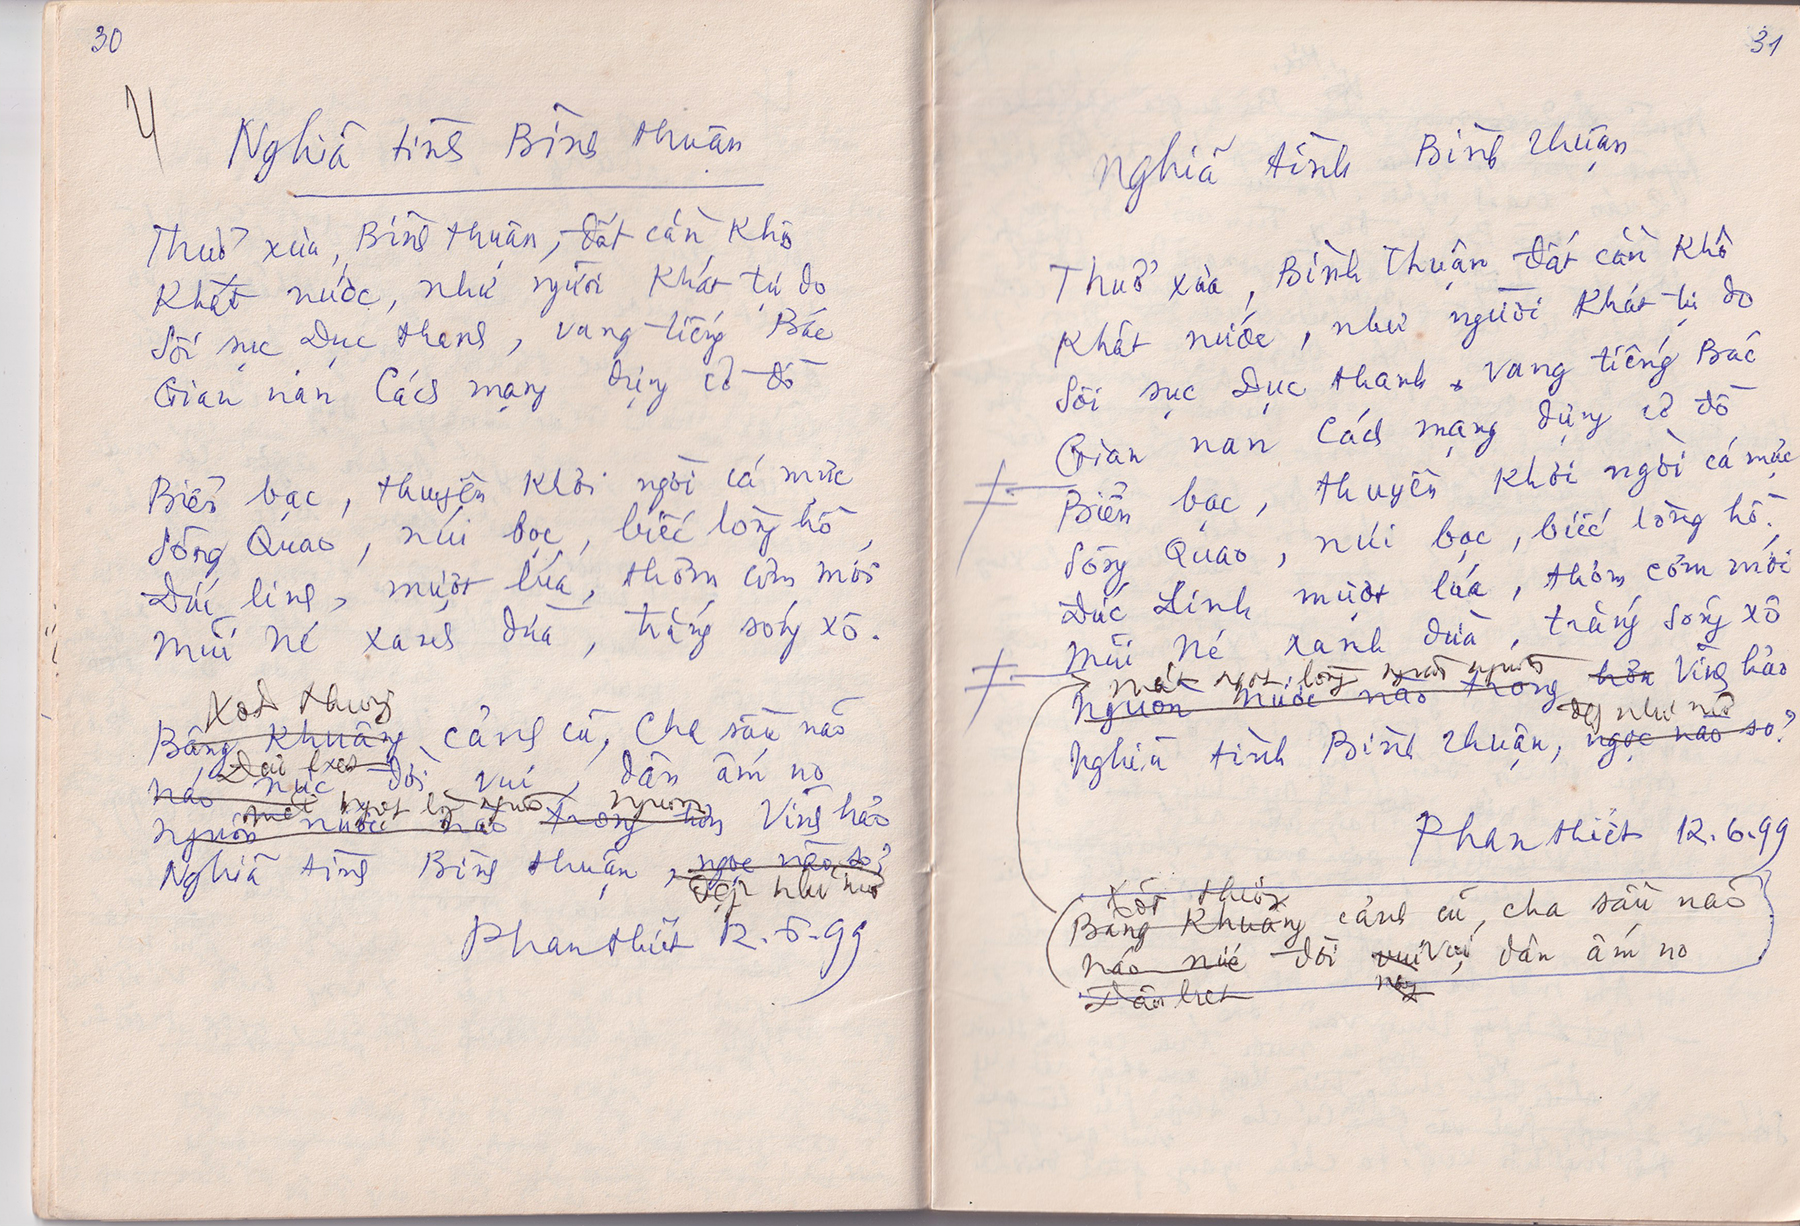 30
4
Nghiã tình Bình thuận
Thuở xưa, Bình thuận, đất cằn khô
Khát nước, như người khát tự do
Sôi sục Dục thanh, vang tiếng Bác
Gian nan Cách mạng dựng cờ đỏ
Biển bạc, thuyền khơi ngời cá mực
Sông Quao, núi bọc, biếc lòng hồ,
Đức linh, mượt lúa, thơm cơm mới
Mũi Né xanh dừa, trắng sóng xô.
Xót thương
Bâng khuâng cảnh cũ, cha sầu não
náo nức đời vui, dân ấm no
mát ngọt lòng người nguồn
nguồn nước nào trong hơn Vĩnh hảo
Nghiã tình Bình thuận, ngọc nào so?
đẹp như mơ
Phan thiết 12.6.99
31
Nghiã tình Bình thuận
Thuở xưa, Bình Thuận đất cằn khô
Khát nước, như người khát tự do
Sôi sục Dục thanh, vang tiếng Bác
Gian nan Cách mạng dựng cờ đỏ
Biển bạc, thuyền khơi ngời cá mực
Sông Quao, núi bọc, biếc lòng hồ.
Đức Linh mượt lúa, thơm cơm mới
Mũi Né xanh dừa, trắng sóng xô
mát ngọt lòng người nguồn
Nguồn nước nào trong hơn Vĩnh hảo
đẹp như mơ
Nghiã tình Bình thuận, ngọc nào so?
Phan thiết 12.6.99
Xót thương
Bâng khuâng cảnh cũ, cha sầu não
náo nức đời vui vui, dân ấm no
nay